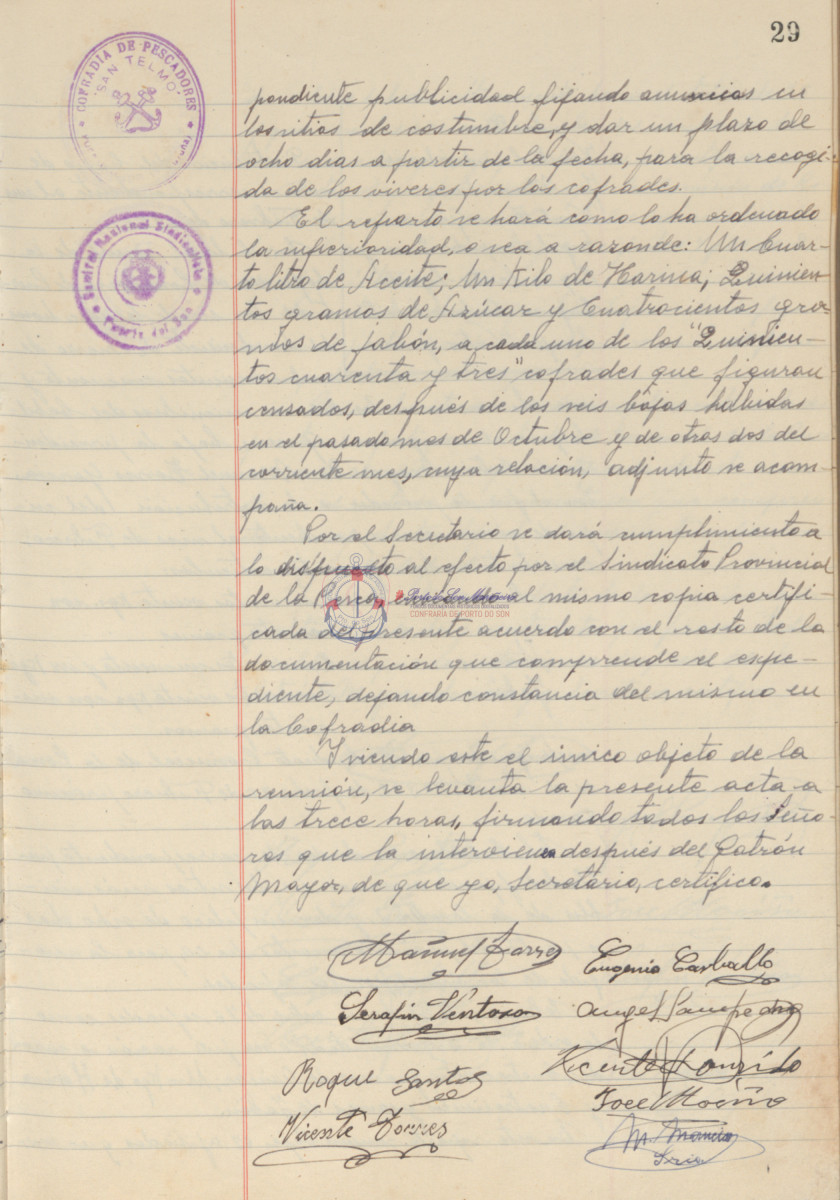 29
COFRADIA DE PESCADORES
"SAN TELMO"
Central Nacional Sindicalista
Puerto del Son
pondiente publicidad fijando anuncios en
los sitios de costumbre, y dar un plazo de
ocho dias a partir de la fecha, para la recogi-
da de los viveres por los cofrades.
El reparto se hará como lo ha ordenado
la superioridad, o sea a razon de: Un Cuar-
to litro de Aceite; Un Kilo de Harina; Quinien-
tos gramos de Azúcar y Cuatrocientos gra-
mos de jabón, a cada uno de los "Quinien-
tos cuarenta y tres" cofrades que figuran
censados, después de los seis bajas habidas
en el pasado mes de Octubre y de otras dos del
corriente mes, cuya relación, adjunto se acom-
paña.
Por el Secretario se dará cumplimiento a
lo dispuesto al efecto por el Sindicato Provincial
de la Pesca, enviando al mismo copia certifi-
CONFRARÍA DE PORTO DO SON
cada del presente acuerdo con el resto de la
documentación que comprende el expe-
diente, dejando constancia del mismo en
la Cofradia
Y siendo este el único objeto de la
reunión, se levanta la presente acta a
las trece horas, firmando todos los Seño-
res que la intervienen después del Patrón
Mayor, de que yo, Secretario, certifico.
Manuel Torres
Eugenio Carballo
Serafin Ventoso
Angel Sampedro
Roque Santos
Vicente
Vicente Torres
Jose
M.
Srio